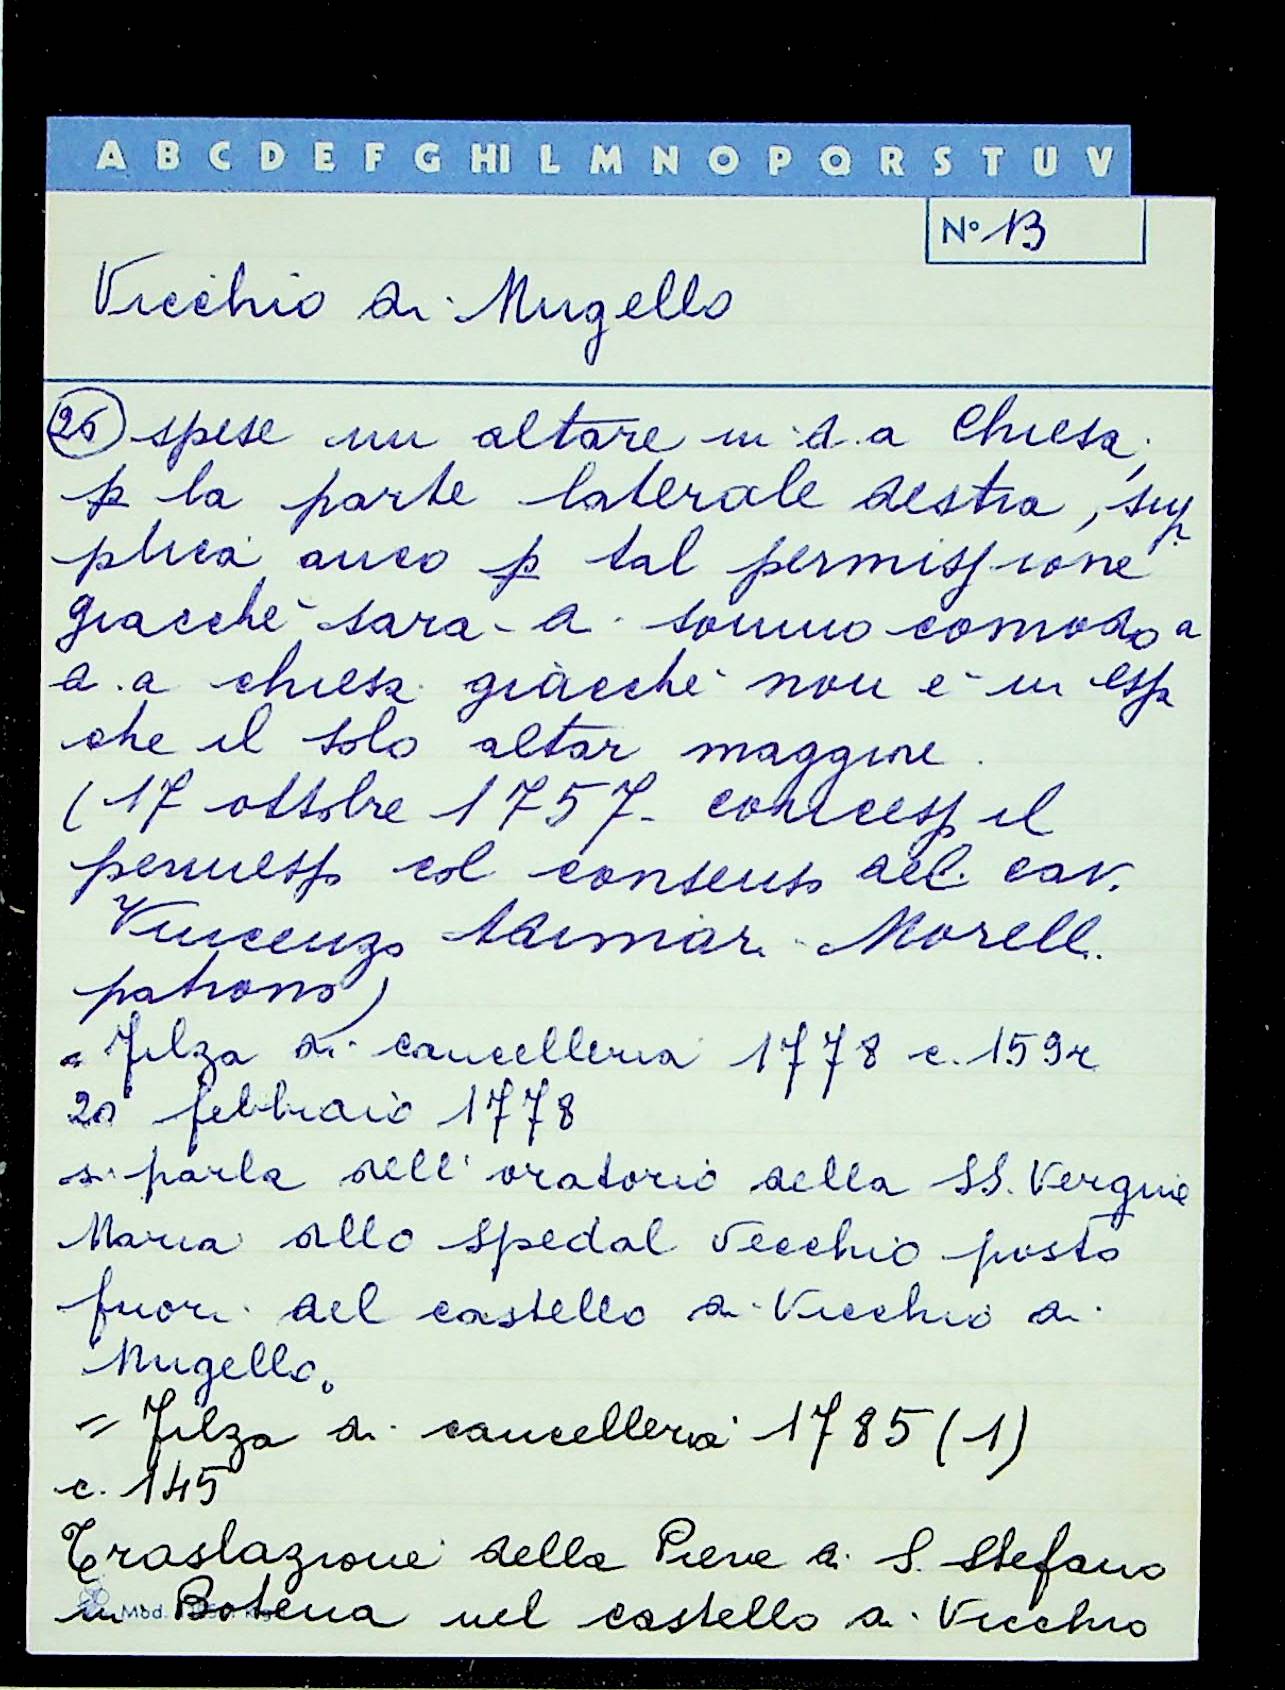 A B C D E F G HI L M N O P Q R S T U V
N° 13
Vicchio di Mugello
26 spese un altare in d.a Chiesa,
p la parte laterale destra, sup
plica anco p tal permissione
giacchè sarà di sommo comodo a
d.a chiesa giacchè non è in essa
che il solo altar maggiore.
(17 ottobre 1757 - concesso il
permesso col consenso del cav.
Vincenzo Adimari Morelli
patrono)
= Filza di cancelleria 1778 c. 159r
20 febbraio 1778
si parla dell'oratorio della SS. Vergine
Maria allo Spedal Vecchio posto
fuori del castello di Vicchio di
Mugello.
= Filza di cancelleria 1785 (1)
c. 145
Traslazione della Pieve di S. Stefano
in Botena nel castello di Vicchio
Mod.